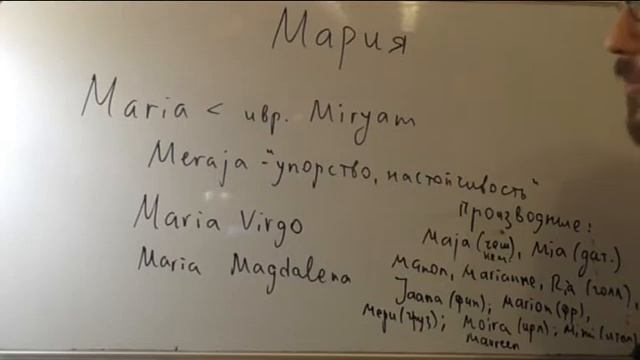 Мария
Maria < ивр. Miryam
Meraja - "упорство, настойчивость"
Maria Virgo
Maria Magdalena
Производные:
Maja (чеш нем), Mia (дат.)
Manon, Marianne, Ria (голл),
Jaana (фин); Marion (фр),
Мери (груз); Moira (ирл); Mimi (итал)
Maureen